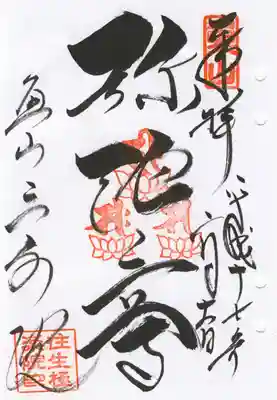 奉拝
平成十七年
弥陀三尊
魚山三千院
往生極
楽院印